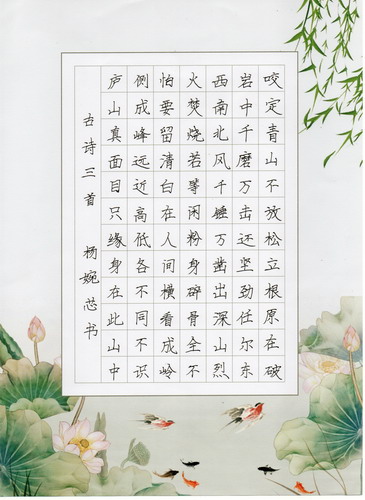 咬定青山不放松立根原在破
岩中千磨万击还坚劲任尔东
西南北风千锤万凿出深山烈
火焚烧若等闲粉身碎骨全不
怕要留清白在人间横看成岭
侧成峰远近高低各不同不识
庐山真面目只缘身在此山中
古诗三首 杨婉芯书